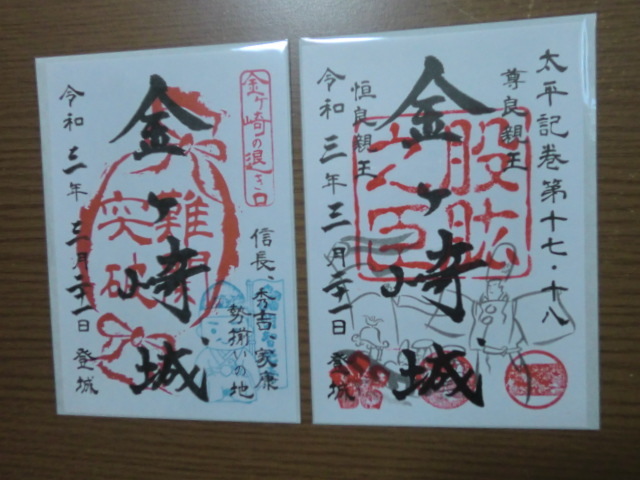 金ヶ崎の退き口
信長、秀吉、家康
勢揃いの地
難関
突破
金ヶ崎城
令和三年三月二十一日 登城
太平記巻第十七・十八
尊良親王
股肱
之臣
金ヶ崎城
恒良親王
令和三年三月二十一日 登城